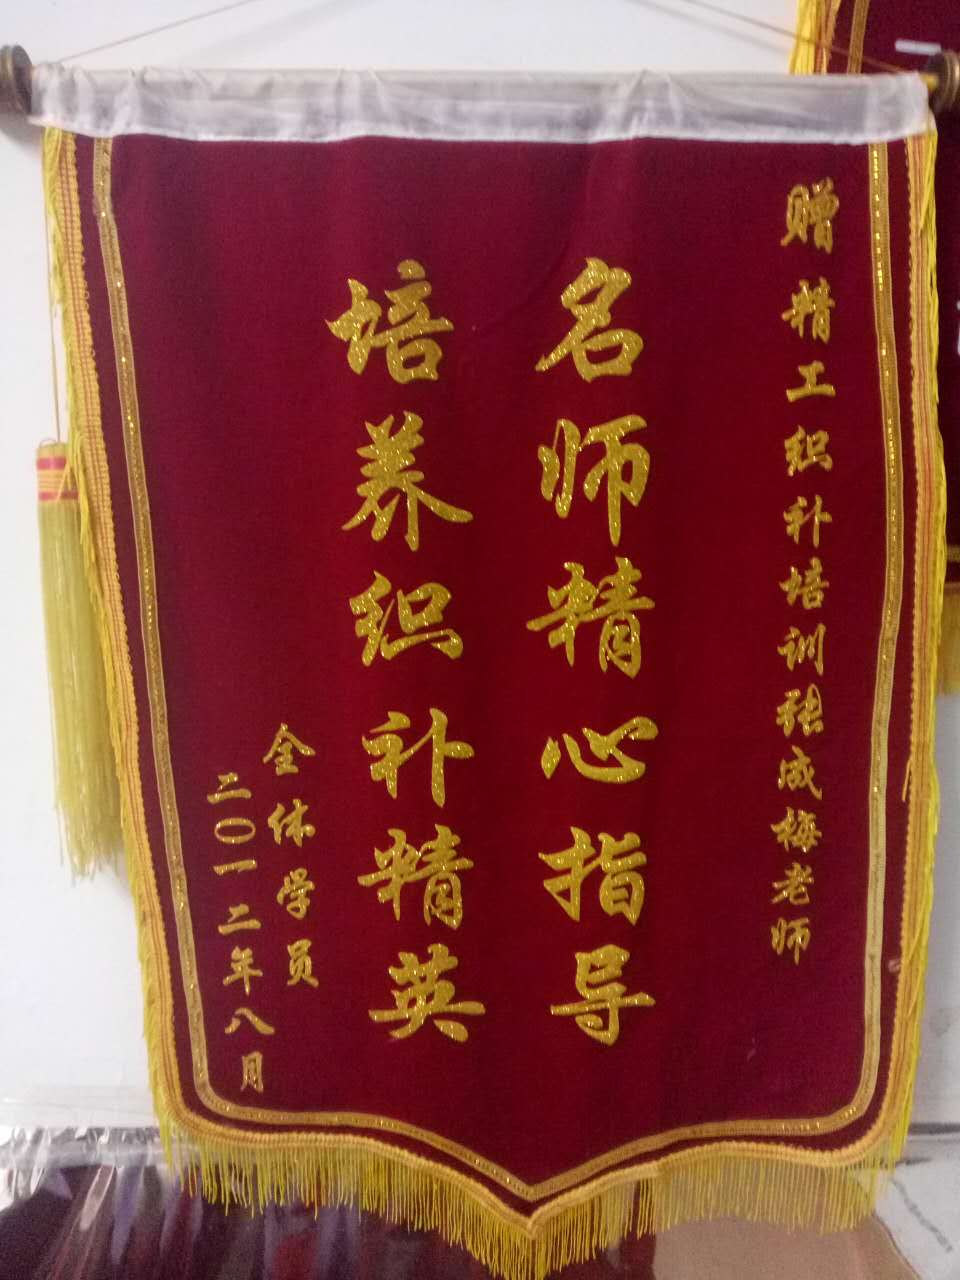 赠精工织补培训张成梅老师
名师精心指导
培养织补精英
全体学员
二〇一二年八月